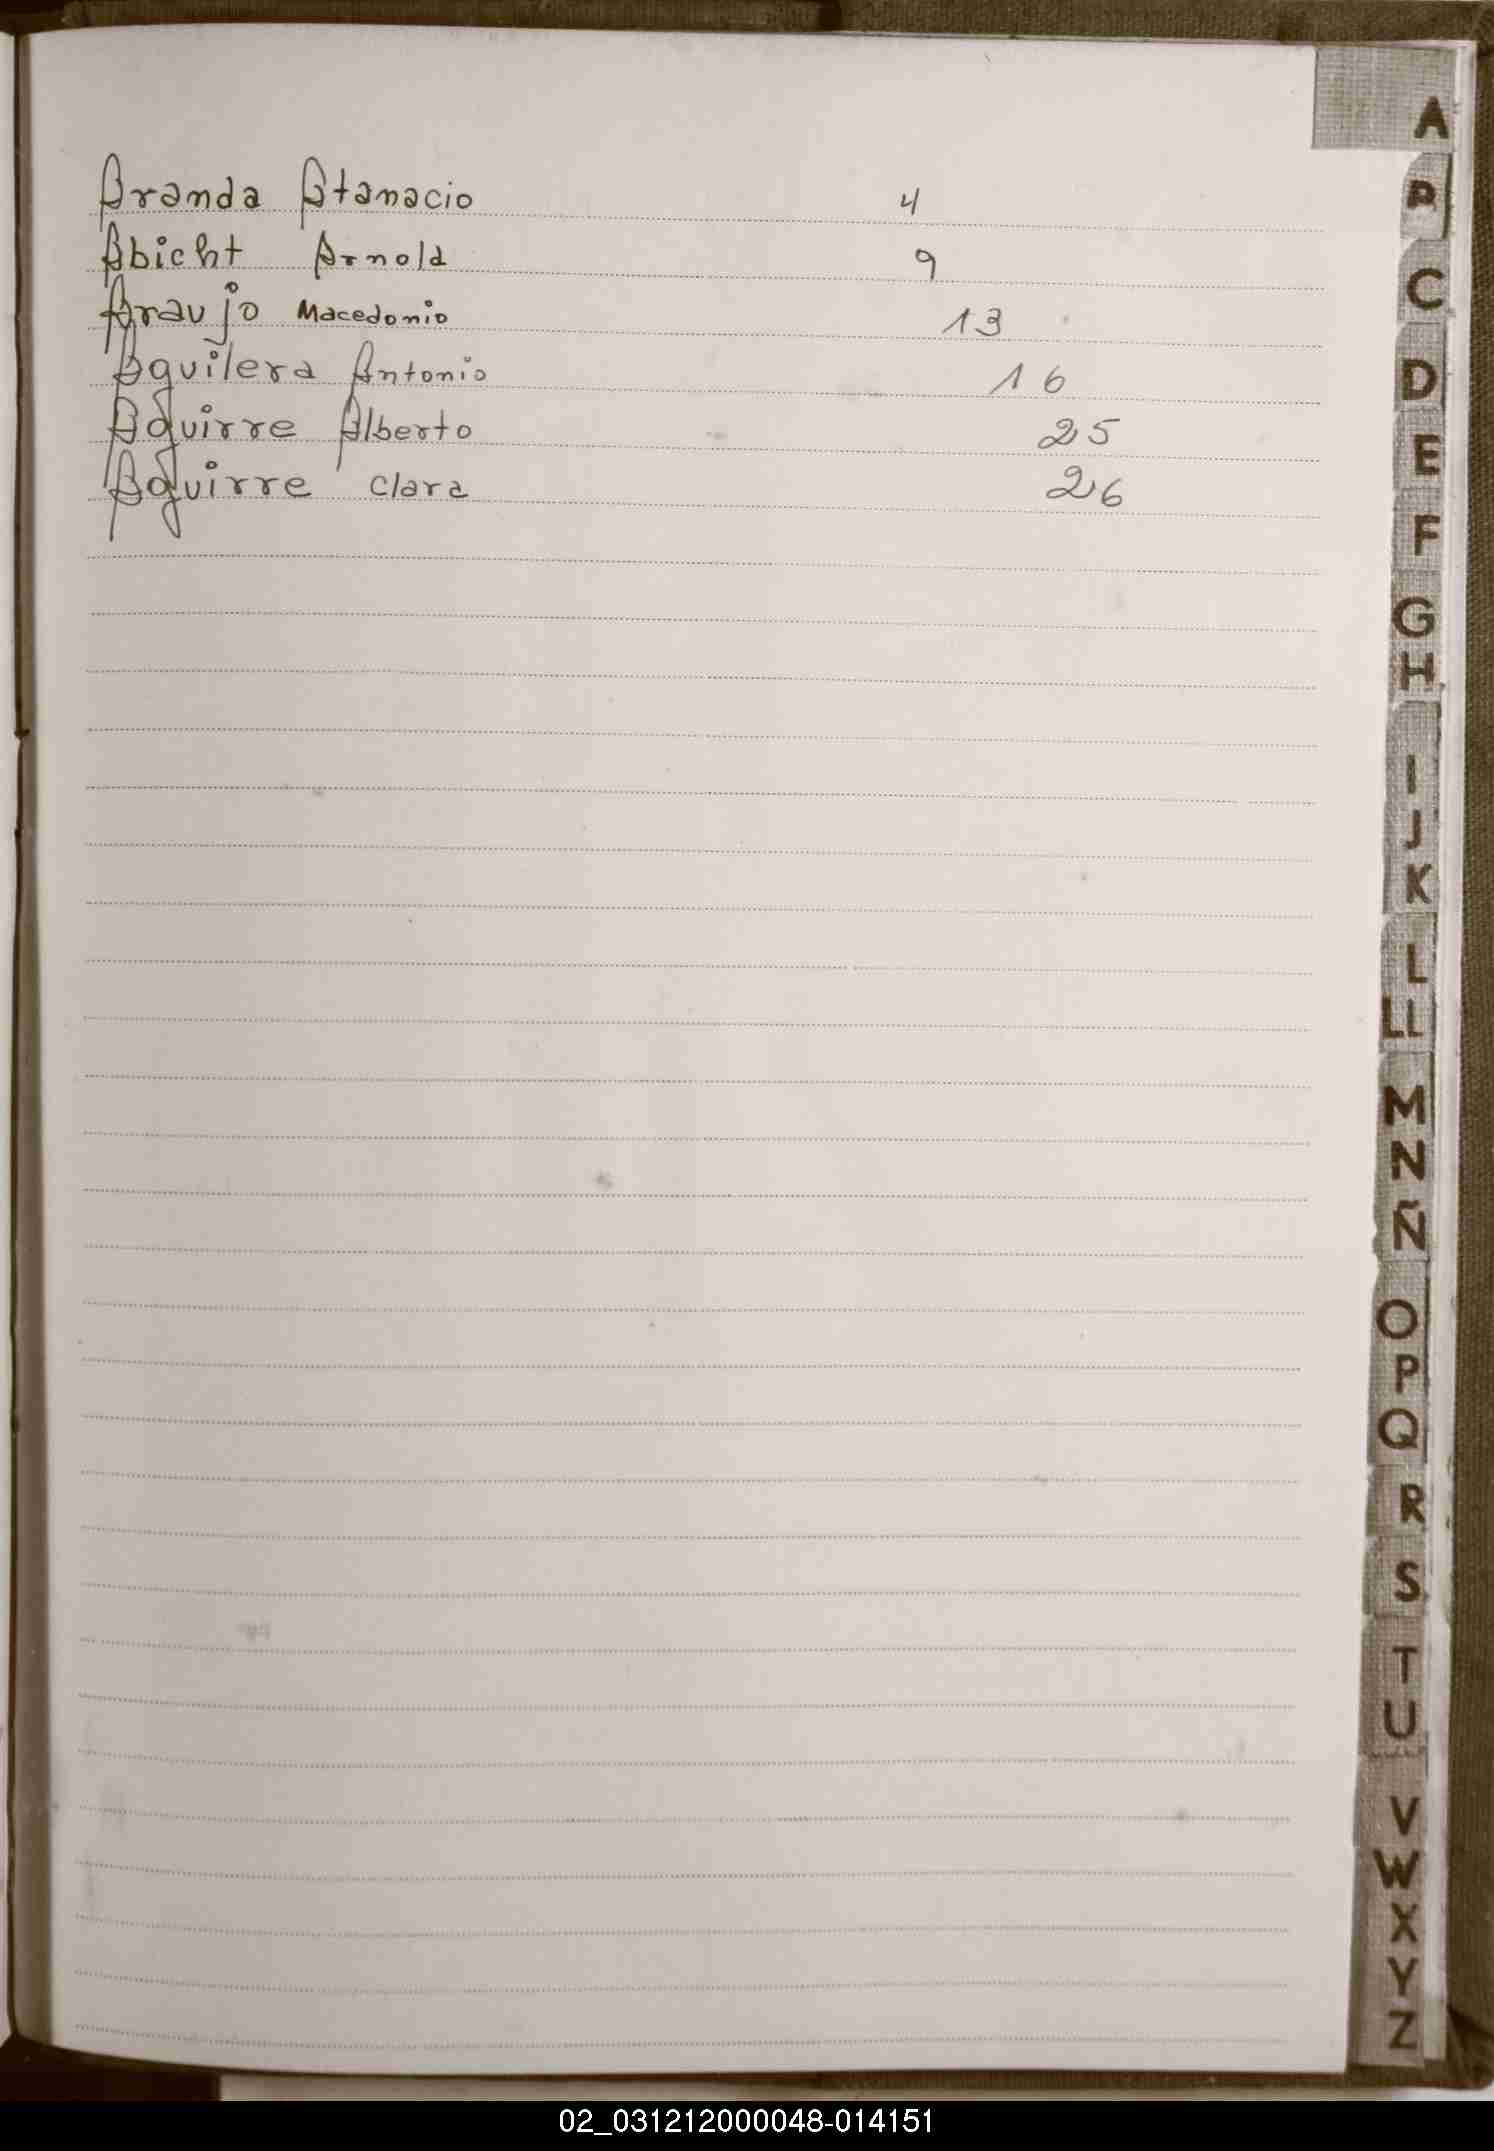 Aranda Atanacio 4
Abicht Arnold 9
Araujo Macedonio 13
Aguilera Antonio 16
Aguirre Alberto 25
Aguirre Clara 26
A
B
C
D
E
F
G
H
I
J
K
L
LL
M
N
Ñ
O
P
Q
R
S
T
U
V
W
X
Y
Z
02_031212000048-014151